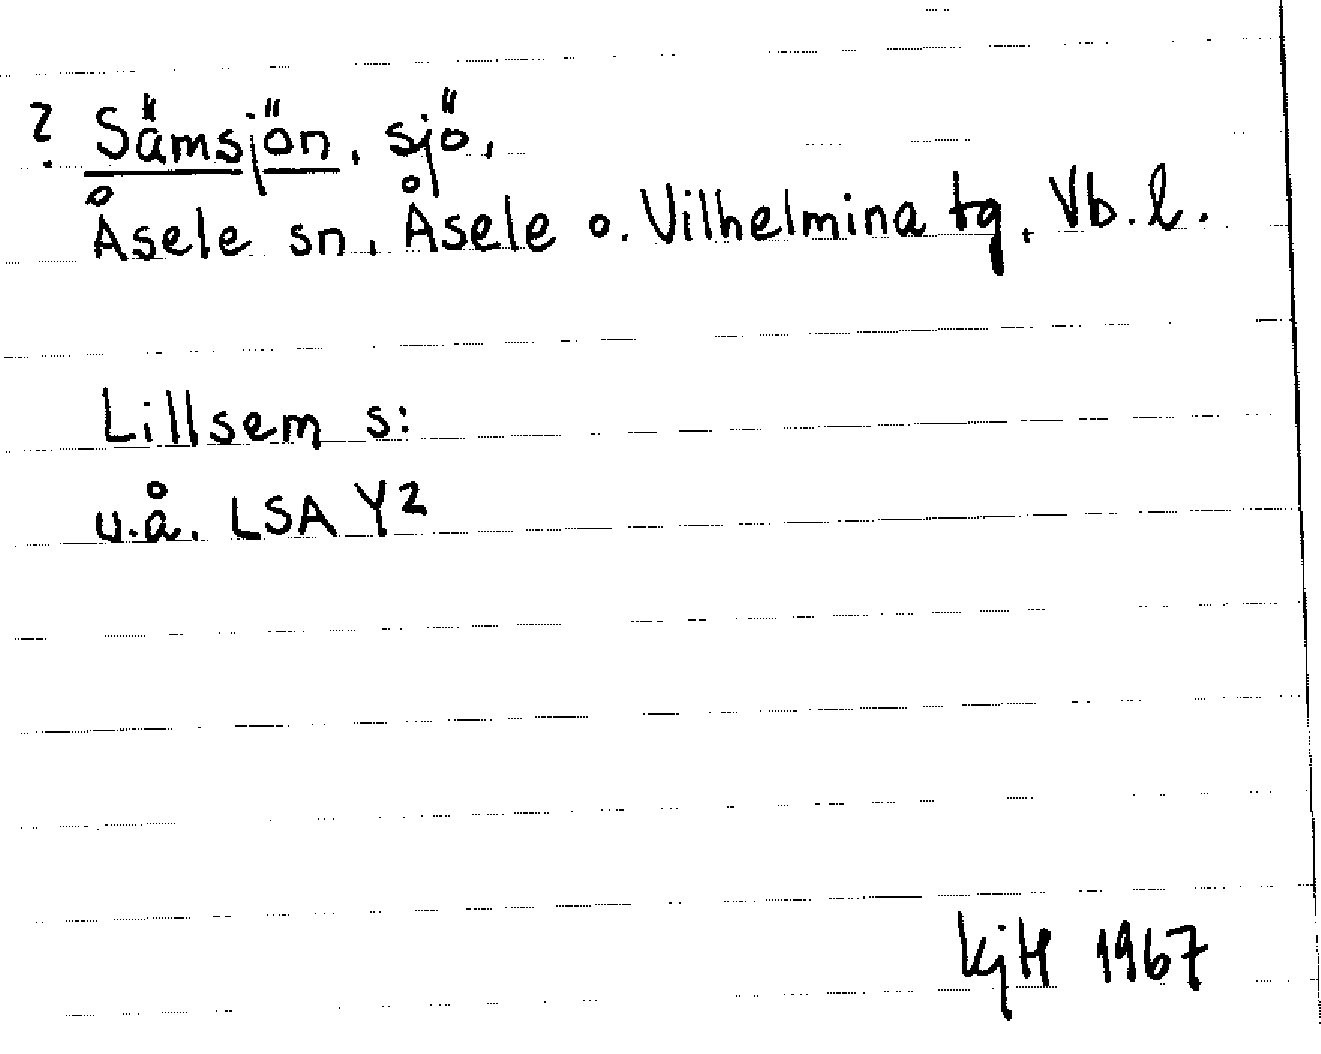 ? Sämsjön, sjö,
Åsele sn, Åsele o. Vilhelmina tg, Vb. l.
Lillsem s:
u.å. LSA Y2
KjH 1967